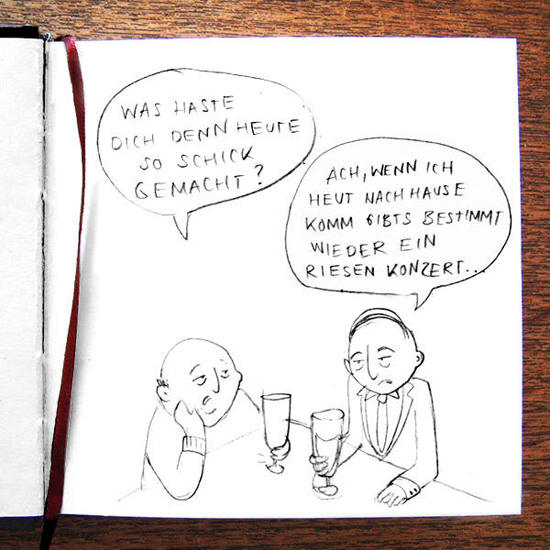 WAS HASTE
DICH DENN HEUTE
SO SCHICK
GEMACHT?
ACH, WENN ICH
HEUT NACH HAUSE
KOMM GIBTS BESTIMMT
WIEDER EIN
RIESEN KONZERT...